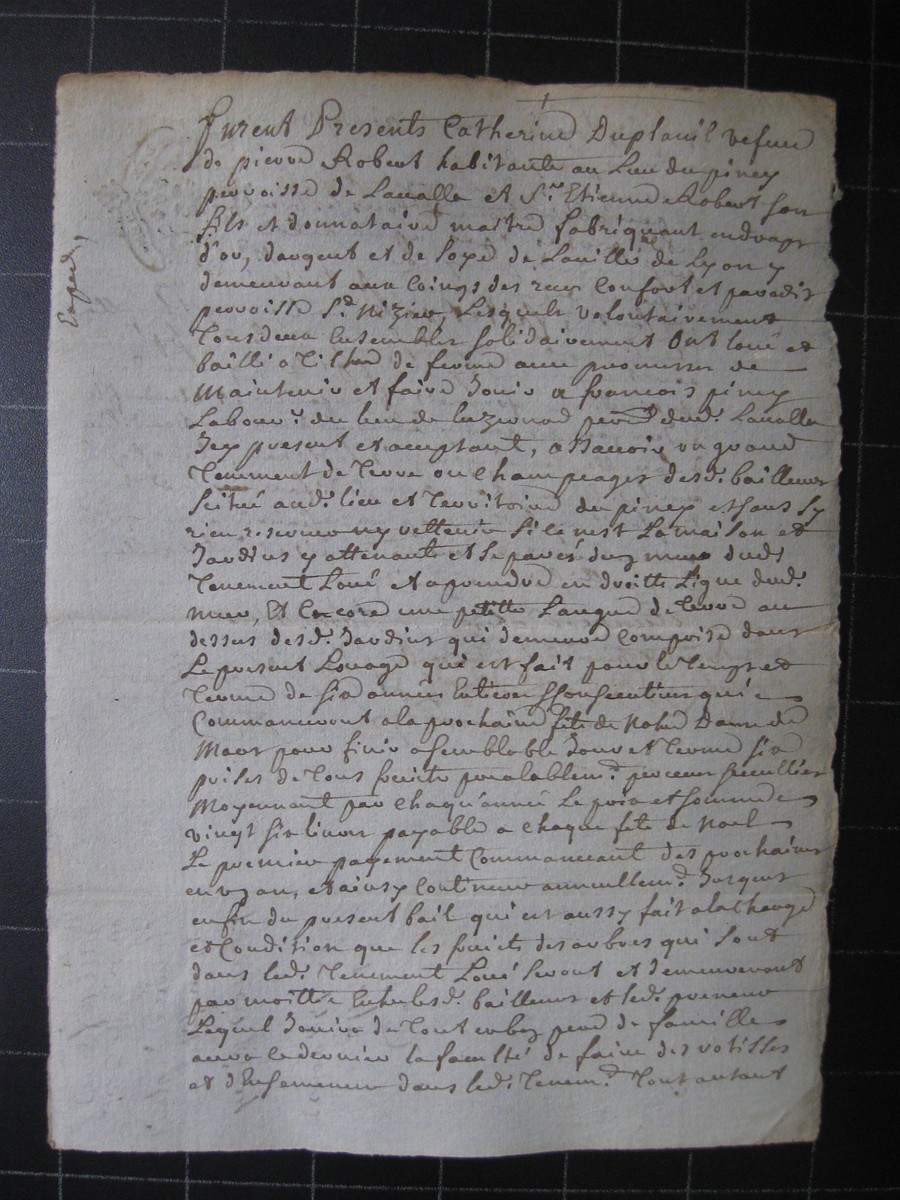 furent Presents Catherine Duplanil vefue
de pierre Robert habitante au Lieu du piney
parroisse de Laualla et Sr. Etienne Robert son
fils et donnataire maitre fabriquant en draps
d'or, dargent et de soye de Laville de Lyon y
demeurant aux Coings des rues Confort et paradis
parroisse St. Nizier, Lesquels volontairement
Tous deux Ensembles solidairement Ont loué et
baillé a Tiltre de ferme avec promesses de
Maintenir et faire Jouir a francois piney
Labour. du lieu de parr. dud. Laualla
Jcy present et acceptant, a Scauoir un grand
Tenement de Terre ou Champeages desd. bailleurs
scitué aud. lieu et Territoire du piney et sans sy
rien reserver ny rettenir si ce nest La maison et
Jardins y attenants et separés du mur dud.
Tenement Loué et a prendre en droitte Ligne dud.
mur, Et Encore une petitte Langue de Terre au
dessus desd. Jardins qui demeure Comprise dans
Le present Louage qui est fait pour le Temps et
Terme de six années Entieres qui
Commanceront a la prochaine fete de Notre Dame de
Mars pour finir a semblable Jour et Terme six
prises de Tous fruits prealablem.t perceus
Moyennant par Chaqu'année Le prix et somme de
vingt six livres payable a Chaque fete de Noel
Le premier payement Commanceant des prochaines
en un an, et ainsy Continuer annuellem.t Jusques
enfin du present bail qui est aussy fait a la Charge
et Condition que les fruits des arbres qui sont
dans led. Tenement Loué seront et demeureront
par moittié Entre lesd. bailleurs et led. preneur
Lequel Jouira du Tout en bon pere de famille
aura ce dernier la faculté de faire des
et d'Ensemencer dans led. Tenem.t Tout autant